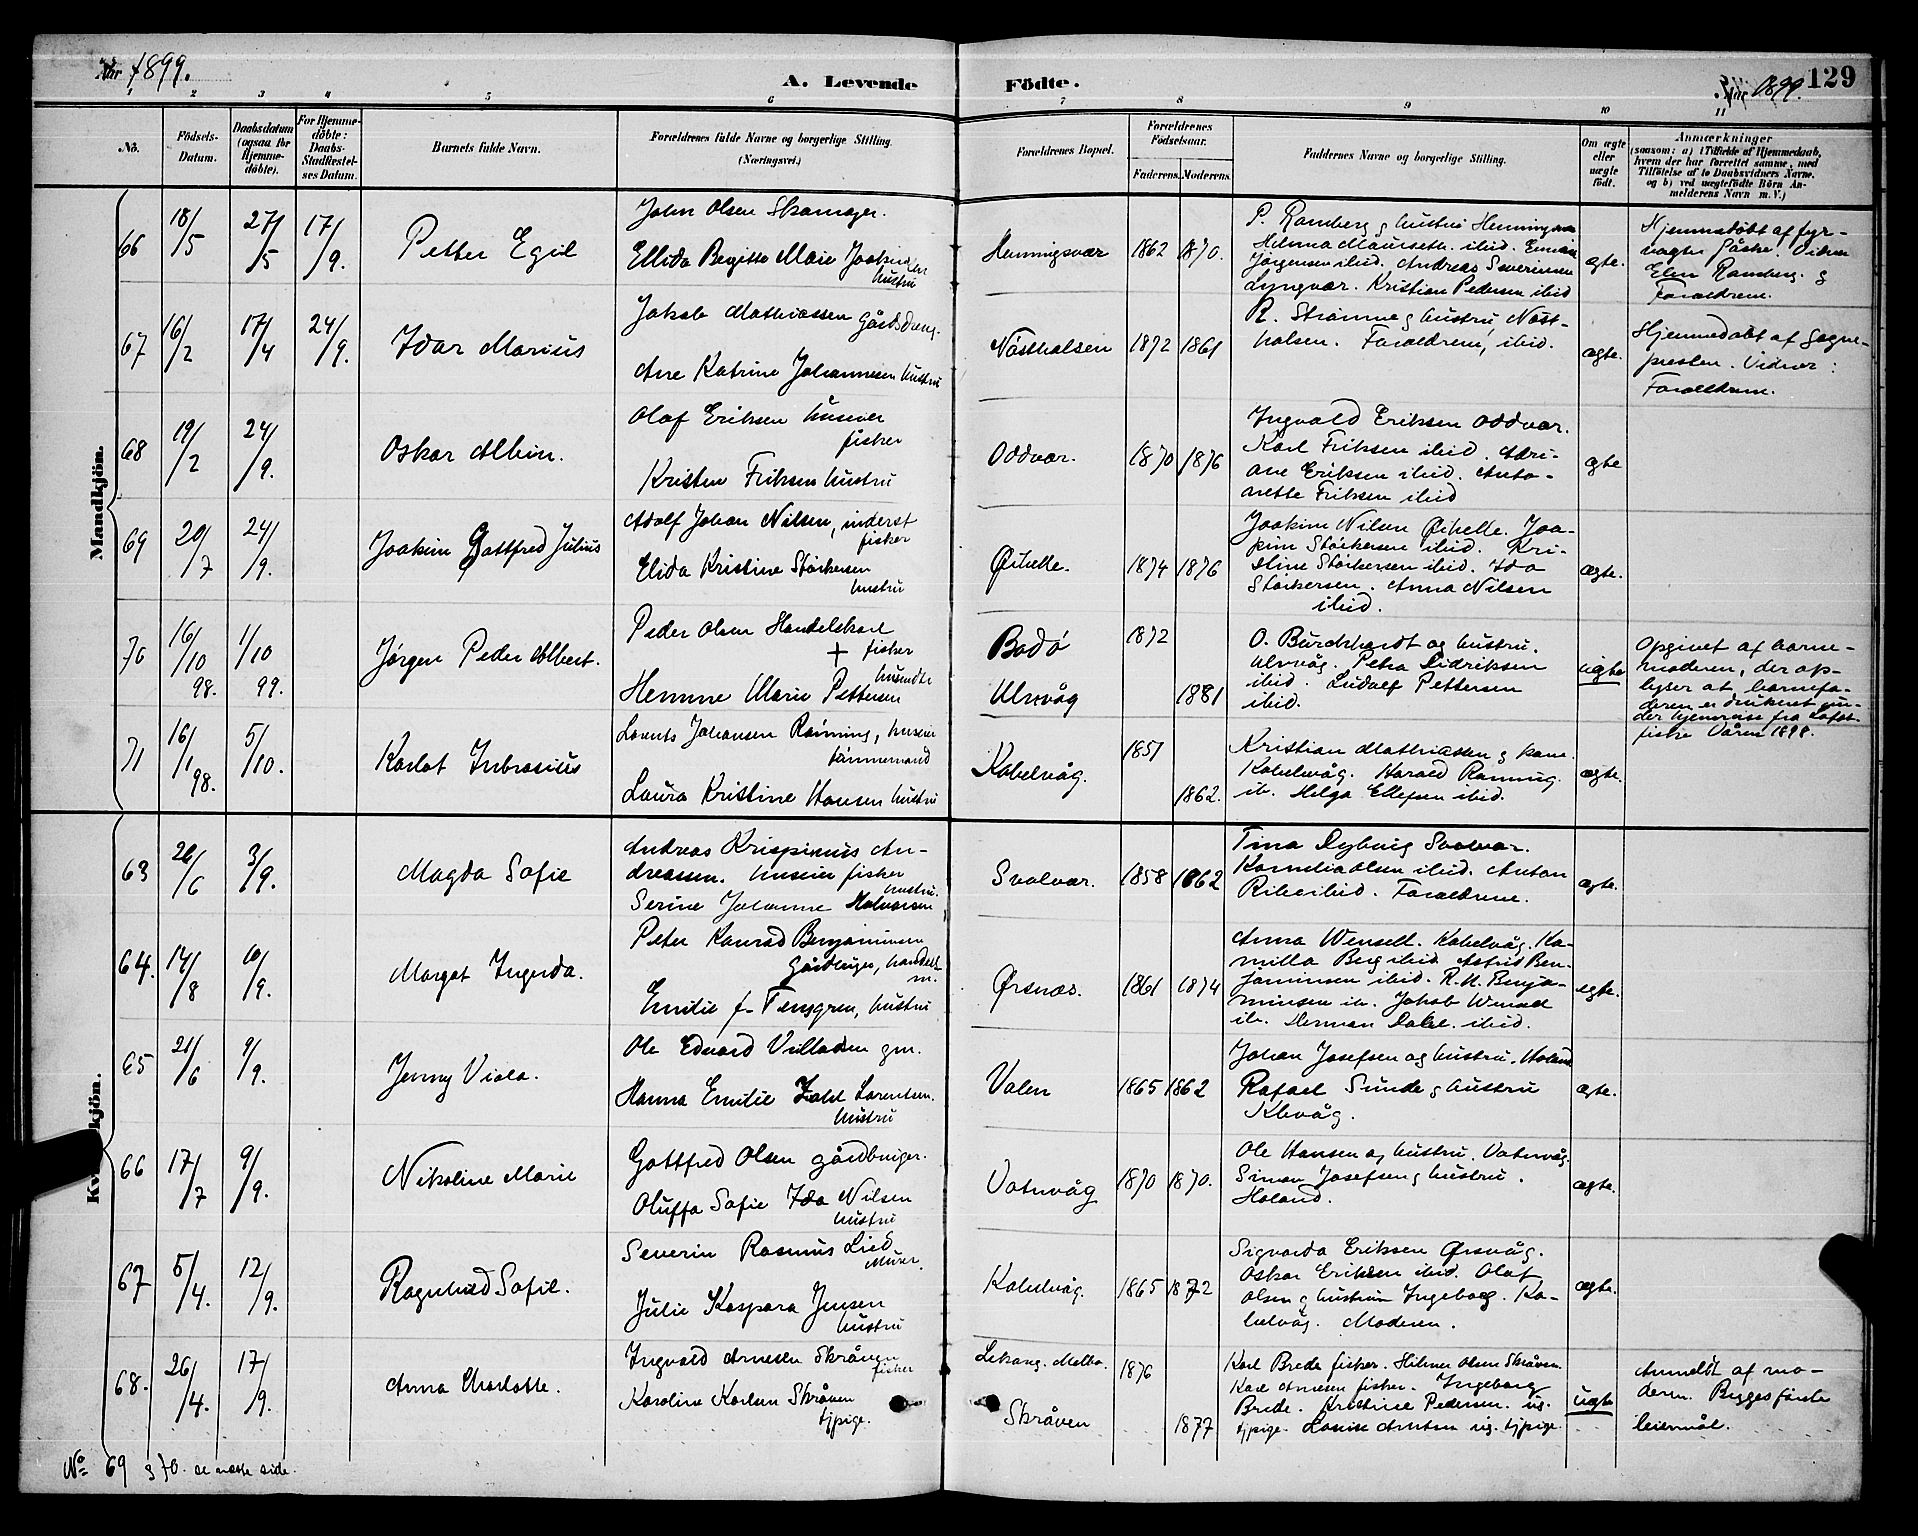 Aar 1899.
A. Levende
Födte.
Aar 1899.
129
1 2 3 4 5 6 7 8 9 10 11
No.
Födsels-
Datum.
Daabsdatum
(ogsaa for
Hjemme-
döbte).
For Hjemme-
döbte:
Daabs-
Stadfæstel-
ses Datum.
Barnets fulde Navn.
Forældrenes fulde Navne og borgerlige Stilling.
(Næringsvei.)
Forældrenes Bopæl.
Forældrenes
Födselsaar.
Faderens. Moderens.
Faddernes Navne og borgerlige Stilling.
Om ægte
eller
uægte
födt.
Anmærkninger
(saasom: a) i Tilfælde af Hjemmedaab,
hvem der har forrettet samme, med
Tilföielse af to Daabsvidners Navne.
og b) ved uægtefödte Börn An-
melderens Navn m. V.)
Mandkjön.
66
18/5
27/5
17/9.
Petter Egil
John Olsen
Ellida Birgitte Marie
hustru
Henningsvær
1862
1870.
P. Ramberg g hustru Henningsvær
ibid.
Jørgensen ibid. Andreas Severinsen
Lyngvær. Kristian Pedersen ibid
ægte.
Hjemmedøbt af fyr-
vogter
Elen Ramberg. g
Forældrene.
67
16/2
17/4
24/9.
Idar Marius
Jakob Mathiassen gårdsdreng.
Ane Katrine Johannesen hustru
Nøstholsen
1872
1861
R. Strømme g hustru, Nøst-
holsen. Forældrene, ibid.
ægte.
Hjemmedøbt af Sogne-
presten. Vidner:
Forældrene.
68
19/2
24/9.
Oskar Albin.
Olaf Eriksen huseier
fisker
Kristen Friksen hustru
Oddvær.
1870
1876
Ingvald Eriksen Oddvær.
Karl Friksen ibid. Adri-
ane Eriksen ibid. Anto-
nette Friksen ibid
ægte
69
20/7
24/9.
Joakim Gottfred Julius
Adolf Johan Nilsen, inderst
fisker
Elida Kristine Størkersen
hustru
Ørhelle.
1874
1876
Joakim Nilsen Ørhelle. Joa-
kim Størkersen ibid. Kri-
stine Størkersen ibid. Ida
Størkersen. Anna Nilsen
ibid.
ægte.
70
16/10 98.
1/10 99.
Jørgen Peder Albert.
Peder Olsen Handelskarl
+ fisker
Hemine Marie Pettersen
Bodø
Ulvvåg
1872
1881
O. Burchhardt og hustru.
Ulvvåg. Petra Didriksen
ibid. Ludolf Pettersen
ibid.
uægte
Opgivet af barne-
moderen, der op-
lyser at barnefa-
deren er druknet un-
der hjemreise fra Lofot-
fiske Våren 1898.
71
16/1 98.
5/10.
Karlot Inbrosius
Lorents Johansen Røining, huseier
tømmermand
Laura Kristine Hansen hustru
Kabelvåg.
1851
1862.
Kristian Mathiassen g kone
Kabelvåg. Harald
ib. Helga Ellefsen ibid.
ægte.
Kvindekjön.
63
26/6
3/9.
Magda Sofie
Andreas Krispinus An-
dreassen. huseier fisker
hustru.
Serine Johanne Halvorsen
Svolvær.
1858
1862
Tina Dyburg Svolvær.
Kornelia Olsen ibid. Anton
Ribe ibid. Forældrene.
ægte.
64.
14/8
10/9.
Margot Ingerda.
Peter Konrad Benjaminsen
Gårdbruger, handels-
m.
Emilie f. Tengren, hustru
Ørsnæs.
1861
1874
Anna Wensell. Kabelvåg. Ka-
milla Berg ibid Astrid Ben-
jaminsen ibid. R. U. Benja-
minsen ib. Jakob
ib. Herman Dahl. ibid.
ægte.
65
21/6
9/9.
Jenny Viola.
Ole Edvard Villadsen gm.
Hanna Emilie Lorentsen.
hustru
Valen
1865
1862
Johan Josefsen og hustru. Holand
Rafael Sunde g hustru
Klevåg.
ægte.
66
17/7
9/9.
Nikoline Marie
Gottfred Olsen gårdbruger.
Oluffa Sofie Ida Nilsen
hustru
Vatervåg
1870
1870.
Ole Hansen og hustru. Vatervåg.
Simon Josefsen g hustru.
Holand.
ægte.
67
5/4.
12/9.
Ragnhild Sofie.
Severin Rasmus Lied
Murer.
Julie Kaspara Jensen
hustru
Kabelvåg.
1865
1872
Sigvarda Eriksen Ørsvåg.
Oskar Eriksen ibid. Olaf
Olsen g hustru Ingeborg. Ka-
belvåg. Moderen.
ægte.
68.
26/4.
17/9.
Anna Charlotte.
Ingvald Arnesen Skråven
fisker
Karoline Karlsen Skråven
tjpige.
Lekang. Melbo.
Skråven
1876
1877
Karl Brede fisker. Hilmer Olsen Skråven.
Karl Arnesen fisker. Ingeborg
Brede. Kristine Pedersen. ug.
tjpige. Louise Arntsen ug. tjpige
uægte
Anmeldt af mo-
deren. Begges første
leiermål.
No 69 g 70. se næste side.